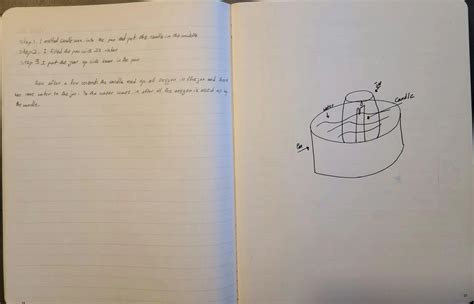 Step 1. I melted candle wax into the pan and put the candle in the middle
Step 2. I filled the pan with water
Step 3. I put the jar up side down in the pan
after a few seconds the candle used up all oxygen in the jar and
water to the jar. So the water comes in after all the oxygen is used up by
the candle.
Jar
water
Candle
Pan